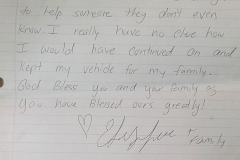 to help someone they don't even
know. I really have no clue how
I would have continued on and
kept my vehicle for my family.
God Bless you and your family as
you have Blessed ours greatly!
+ Family